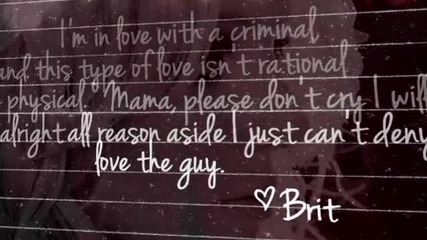 I'm in love with a criminal
and this type of love isn't rational
physical Mama, please don't cry I will
alright all reason aside I just can't deny
love the guy.
♡ Brit